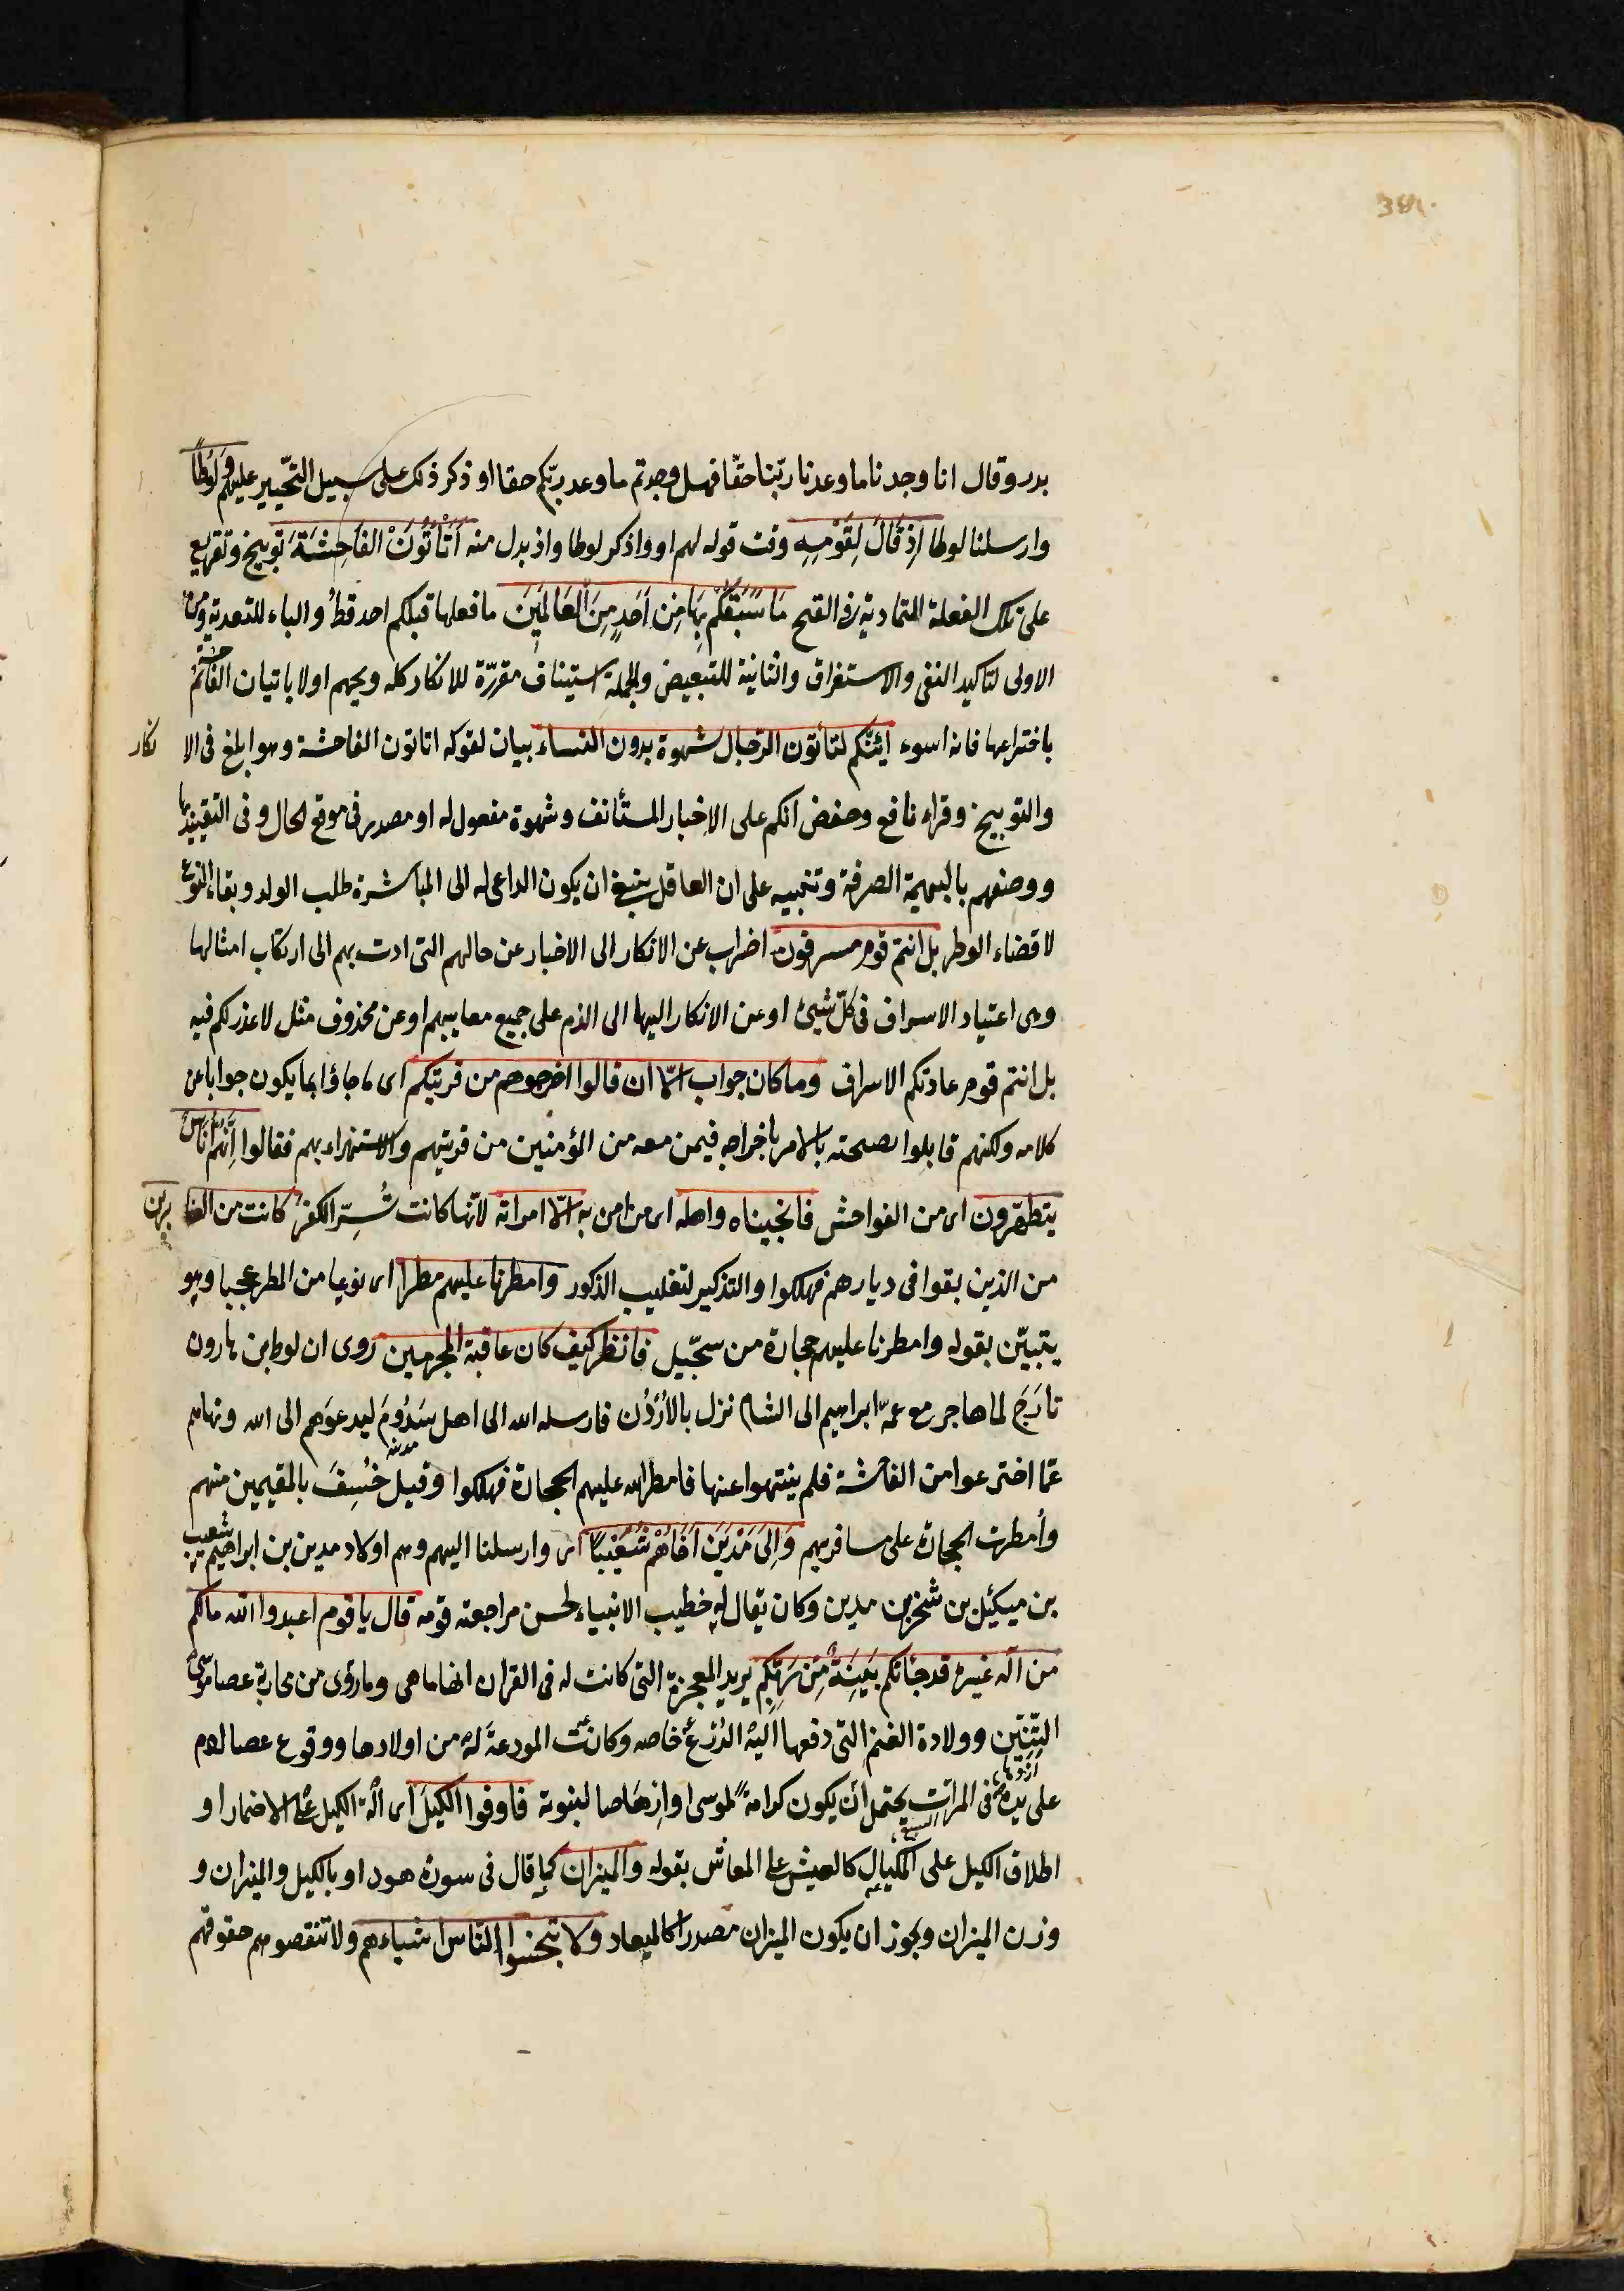 381
بدر وقال انا وجدنا ما وعدنا ربّنا حقّا فهل وجدتم ما وعد ربّكم حقا او ذكر ذلك على سبيل التحّير عليهم وَلُوطًا
وارسلنا لوطا اِذ قَالَ لِقَوْمِهِ وقت قوله لهم او واذكر لوطا واذ بدل منه اَتَأتُونَ الفَاحِشَةَ توبيخ وتقريع
على تلك الفعلة المتمادية فى القبح مَا سَبَقَكُم بِهَا مِن اَحَدٍ مِنَ العَالَمِينَ ما فعلها قبلكم احد قطُ والباء للتعدية ومن
الاولى لتاكيد النفى والاستغراق والثانية للتبعيض والجملة استيناف مقرّرة للانكار كله وبخهم اولا باتيان الفاحشة ثمّ
باختراعها فانه اسوء أئنّكم لتاتون الرّجال شهوة بدون النساء بيان لقوله اتاتون الفاحشة وهو ابلغ فى الا نكار
والتوبيخ وقراء نافع وحفض انكم على الاخبار المستأنف وشهوة مفعول له او مصدر فى موقع الحال وفى التقييد بها
ووصفهم بالبهيمية الصرفة وتنبيه على ان العاقل ينبغ ان يكون الداعى له الى المباشرة طلب الولد وبقاء النوع
لا قضاء الوطر بل انتم قوم مسرفون اضراب عن الانكار الى الاخبار عن حالهم التى ادت بهم الى ارتكاب امثالها
وهى اعتياد الاسراف فى كلّ شئ او عن الانكار اليها الى الذم على جميع معايبهم او عن محذوف مثل لا عذر لكم فيه
بل انتم قوم عادتكم الاسراف وما كان جواب الّا ان قالوا اخرجوهم من قريتكم اى ما جاؤا بما يكون جوابا عن
كلامه ولكنهم قابلوا نصحته بالامر باخراجه فيمن معه من المؤمنين من قريتهم والاستهزاء بهم فقالوا اِنَّهُم اُنَاسٌ
يتطهّرون اى من الفواحش فانجيناه واهله اى من امن به الّا امراته لانّها كانت تُسِرّ الكفر كانت من الغا برين
من الذين بقوا فى ديارهم فهلكوا والتذكير لتغليب الذكور وامطرنا عليهم مطرا اى نوعا من المطر عجيبا وهو
يتبيّن بقوله وامطرنا عليهم حجارة من سجّيل فانظر كيف كان عاقبة المجرمين روى ان لوط بن هارون
تَارَح لما هاجر مع عمّه ابراهيم الى الشام نزل بالأُرْدُن فارسله الله الى اهل سَدُومَ ليدعوَهم الى الله ونهاهم
عمّا اخترعوا من الفاحشة فلم ينتهوا عنها فامطر الله عليهم الحجارة فهلكوا وقيل خُسِفَ بالمقيمين منهم
وأمطرت الحجارة على مسافريهم وَإِلَى مَدْيَنَ اَخَاهُمْ شُعَيْبًا اى وارسلنا اليهم وهم اولاد مدين بن ابراهيم شعيب
بن ميكئيل بن شخر بن مدين وكان يقال له خطيب الانبياء لحسن مراجعته قومه قال يا قوم اعبدوا الله مالكم
من اله غيره قد جائتكم بَيِّنَةٌ مِّن رَبِّكُم يريد المعجزة التى كانت له فى القران انها ما هى وما روى من محاربة عصا موسى
التِّنِّين وولادة الغنم التى دفعها اليه الدُرْعَ خاصه وكانت المودعة له من اولادها ووقوع عصا ادم
على يده فى المرات يحتمل ان يكون كرامةً لموسى او اِرْهَاصا لنبوته فاوفوا الكيلَ اى الة الكيل على الاضمار او
اطلاق الكيل على المكيال كالعيش على المعاش بقوله والميزان كما قال فى سورة هود او بالكيل والميزان و
وزن الميزان ويجوز ان يكون الميزان مصدرا كالميعاد ولا تبخسوا النّاس اشياءهم ولا تنقصوهم حقوقهم